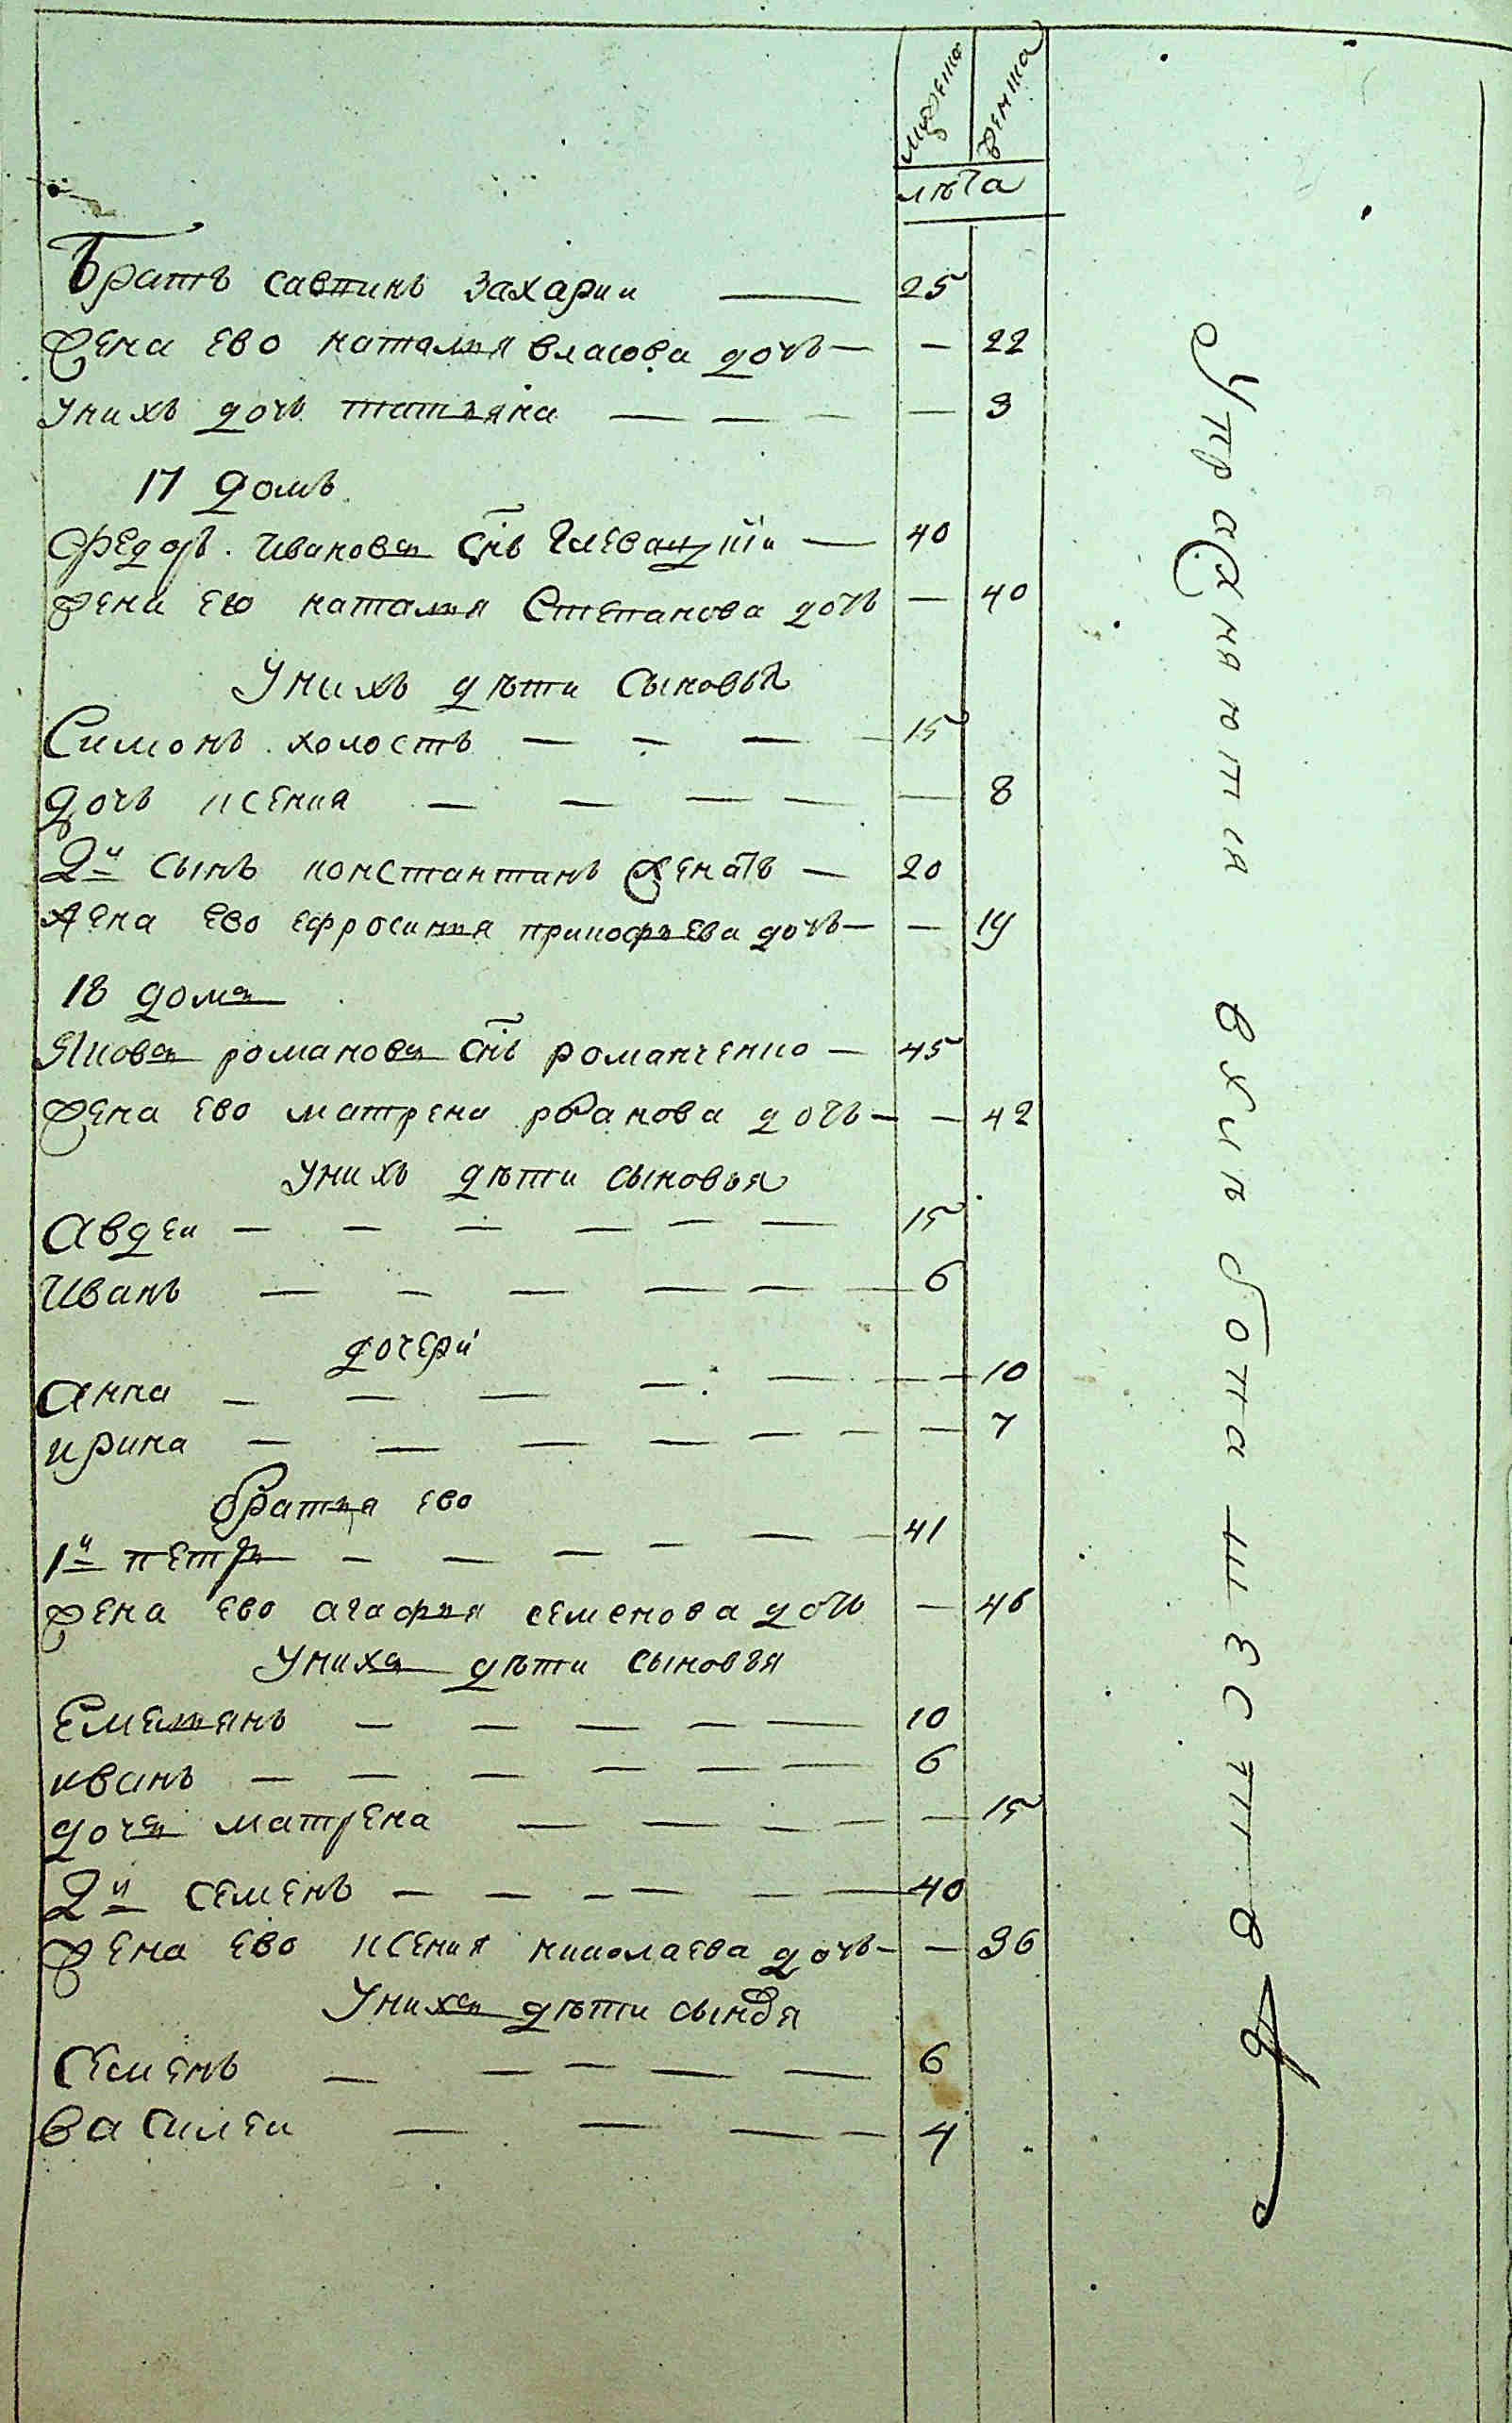 мужеска женска
лѣта
Братъ савтинъ Захарии — 25
Жена ево наталия власова дочь — — 22
унихъ дочь татьяна — — — — 3
17 домъ
Федоръ Ивановъ снъ — 40
жена ево наталия Степанова дочь — 40
Унихъ дѣти Сыновья
Симонъ холостъ — — — — 15
дочь ксения — — — — — 8
2й сынъ константинъ женатъ — 20
жена ево ефросиния прикофьева дочь — — 19
18 домъ
Яковъ романовъ снъ романченко — 45
жена ево матрена романова дочь — — 42
унихъ дѣти сыновья
Авдеи — — — — — — 15
Иванъ — — — — — — 6
дочери
Анна — — — — — — — 10
ирина — — — — — — — 7
братия ево
1й петръ — — — — — — 41
жена ево агафия семенова дочь — 46
Унихъ дѣти сыновья
Емельянъ — — — — — 10
иванъ — — — — — — 6
дочь матрена — — — — — 15
2й семенъ — — — — — — 40
жена ево ксения николаева дочь — — 36
Унихъ дѣти сыновья
Семенъ — — — — — 6
василеи — — — — 4
Упражняются вхлибопашествѣ